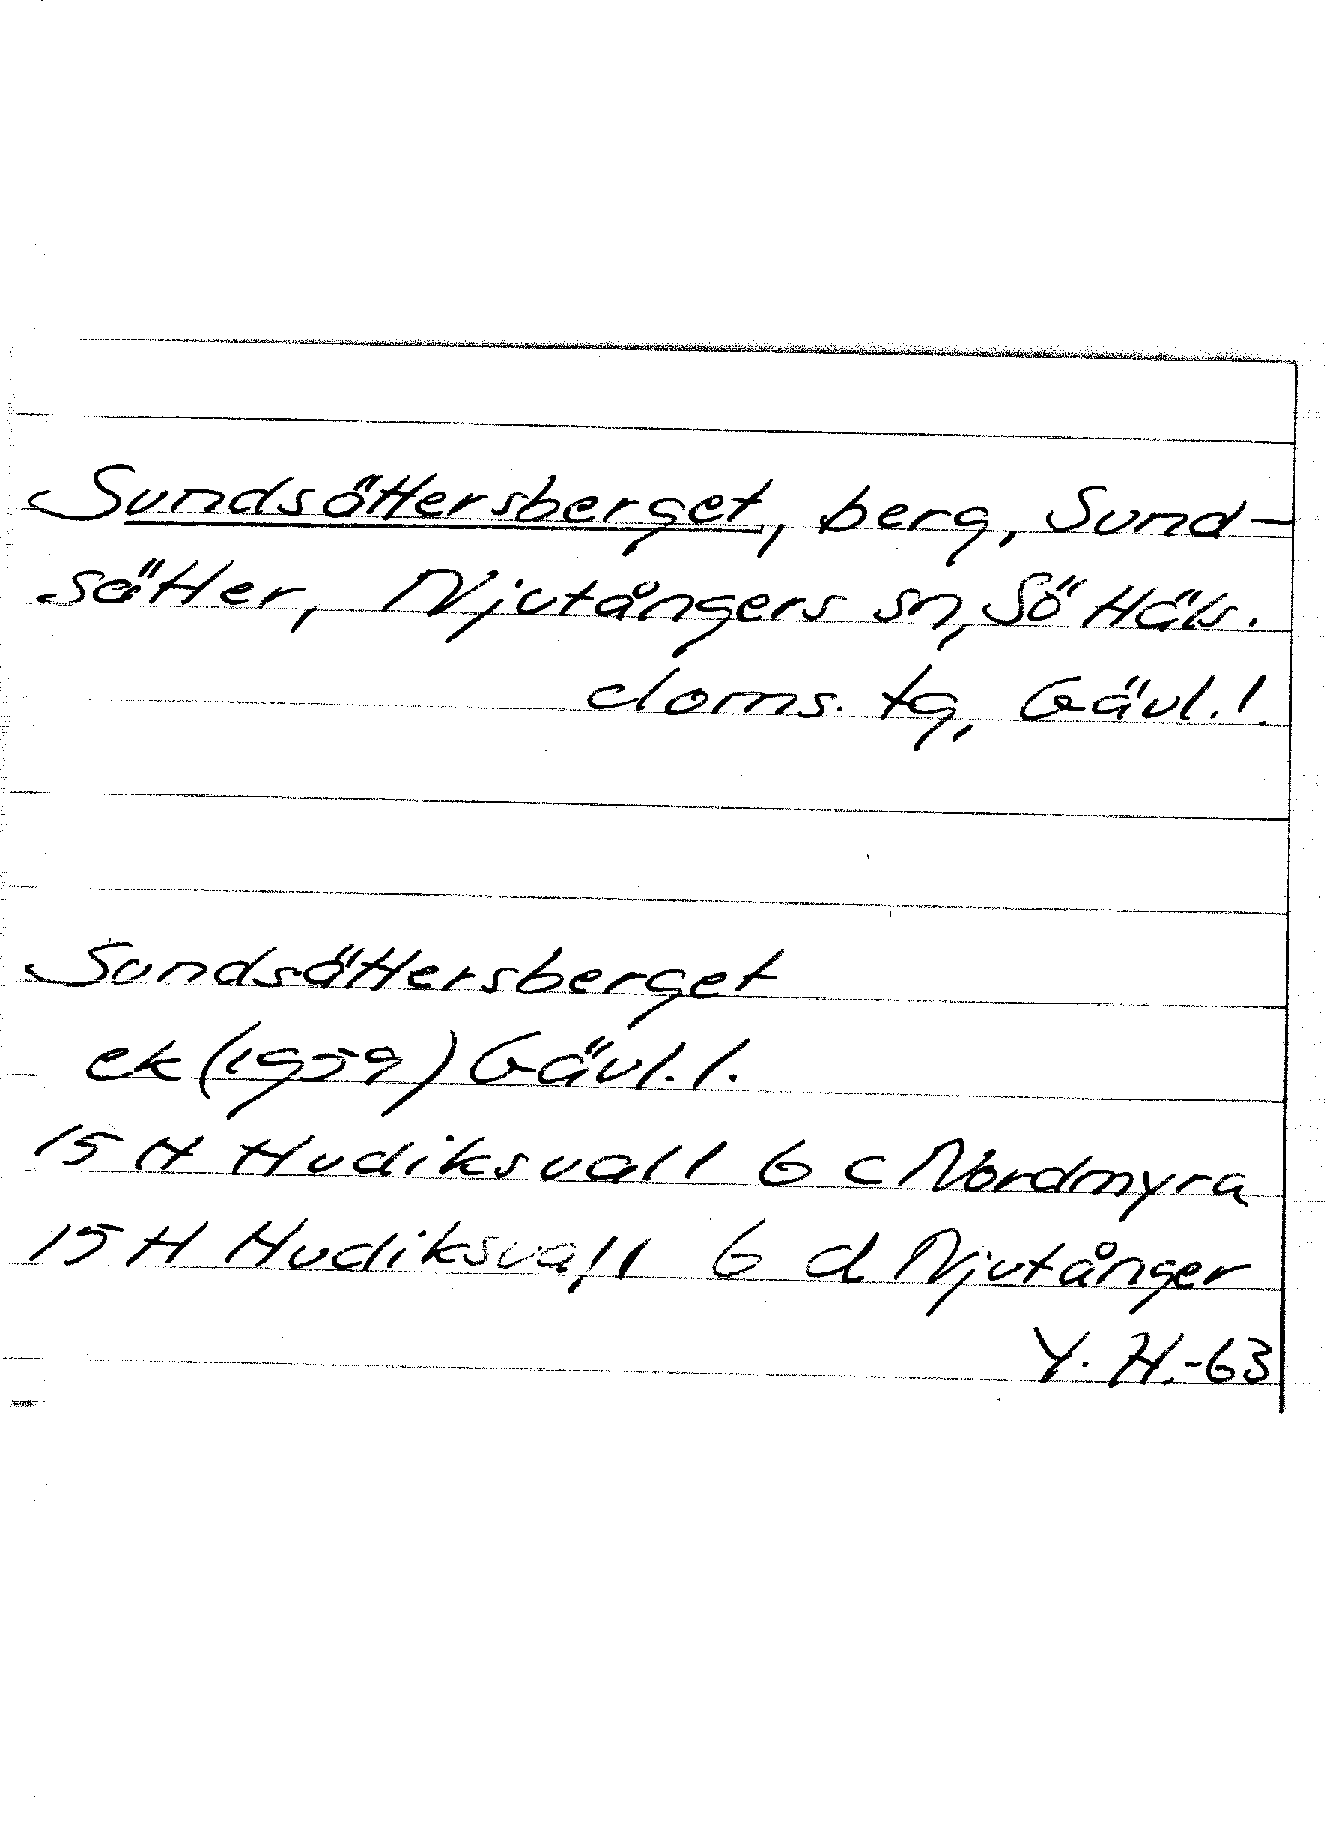 Sundsättersberget, berg, Sund-
sätter, Njutångers sn, Sö Häls.
doms. tg, Gävl.l.
Sundsättersberget
ek (1959) Gävl.l.
15 H Hudiksvall 6 c Nordmyra
15 H Hudiksvall 6 d Njutånger
Y. H.-63